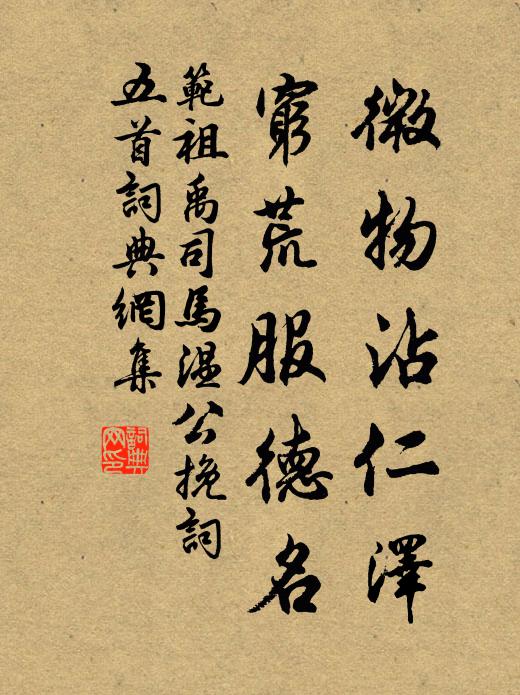 微物沾仁澤
窮荒服德名
範祖禹司馬溫公挽詞
五首詞典網集
詞典
网印